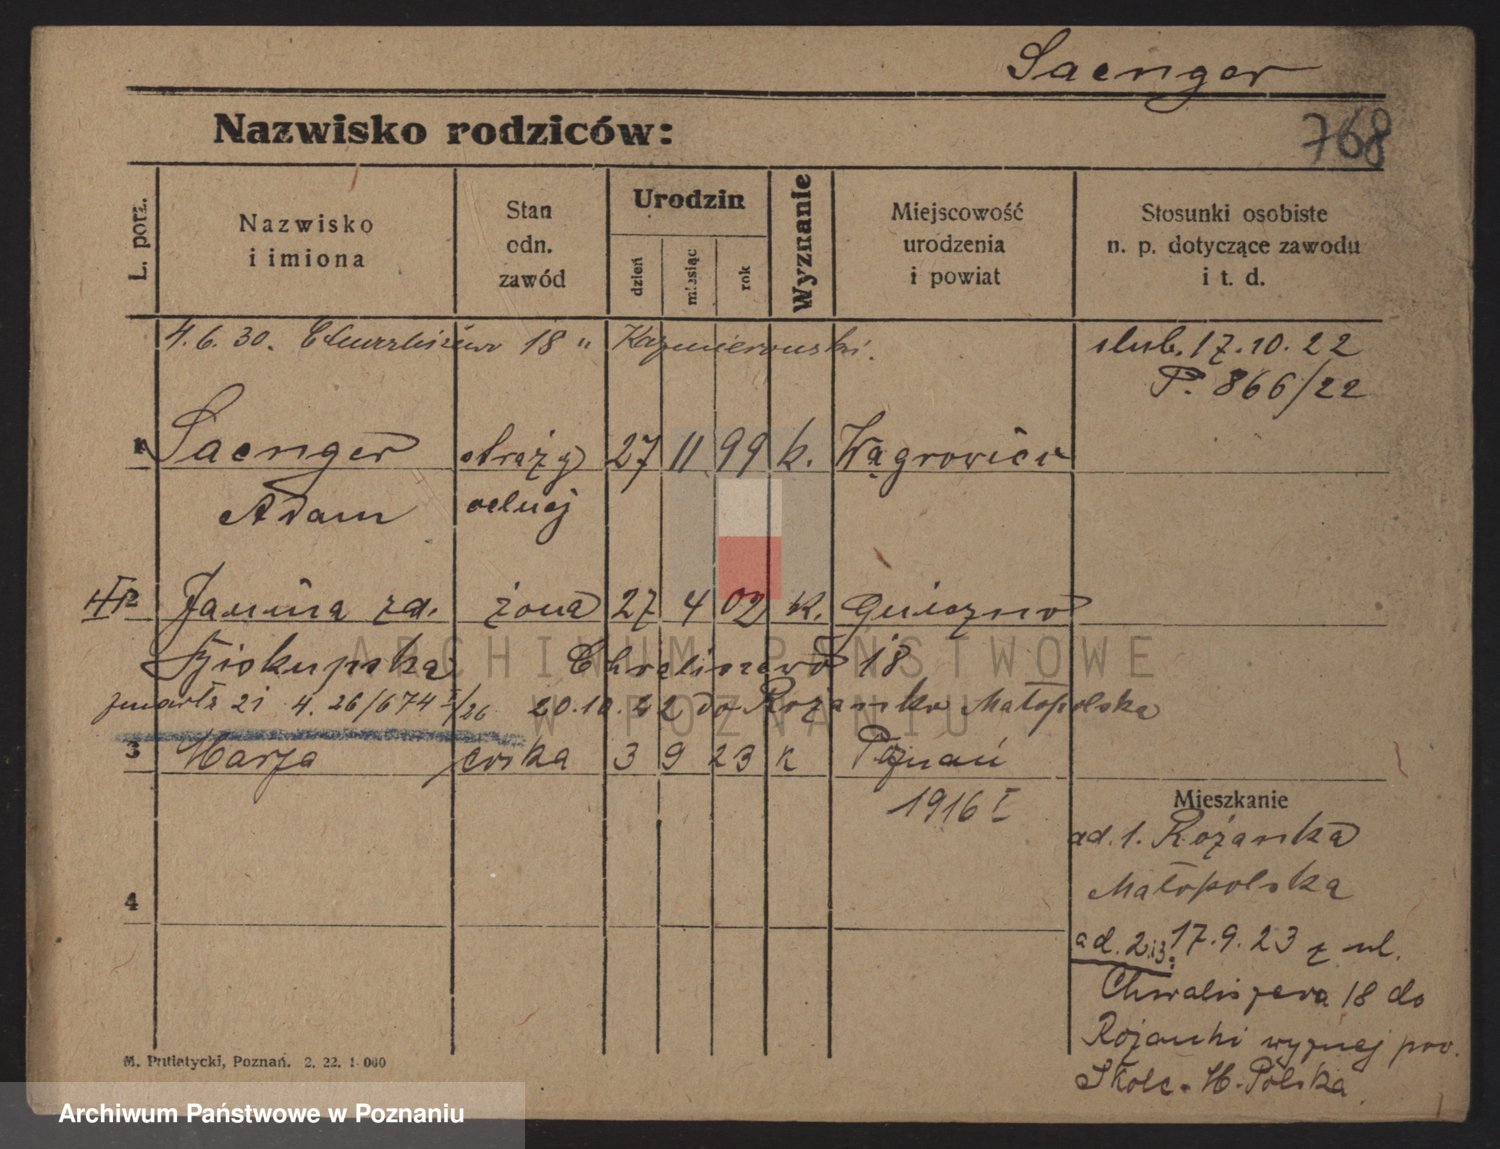 Saenger
768
Nazwisko rodziców:
L. porz.
Nazwisko
i imiona
Stan
odn.
zawód
Urodzin
dzień
miesiąc
rok
Wyznanie
Miejscowość
urodzenia
i powiat
Stosunki osobiste
n. p. dotyczące zawodu
i t. d.
4.6.30. 18 u Kazmierowski.
ślub. 17.10.22
P. 866/22
1 Saenger straży 27 11 99 k. Wągrowiec
Adam celnej
2 Janina zd. żona 27 4 02 k. Gniezno
Biskupska Chwaliszewo 18
zmarła 21 4. 26/674 I/26 20.10.22 do Rożanka Małopolska
3 Marja córka 3 9 23 k Poznań
1916 I
Mieszkanie
ad. 1. Rożanka
Małopolska
4
ad. 2 i 3: 17.9.23 z ul.
Chwaliszewa 18 do
Rożanki wyżnej pow.
Skole - M. Polska
M. Putiatycki, Poznań. 2. 22. 1 000
ARCHIWUM PAŃSTWOWE
W POZNANIU
Archiwum Państwowe w Poznaniu